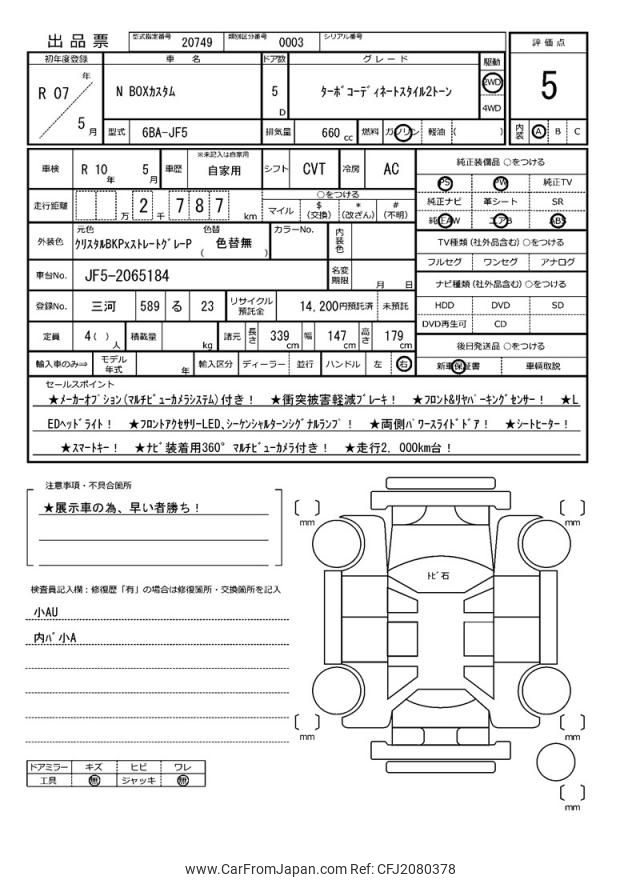 出品票
型式指定番号 20749 類別区分番号 0003 シリアル番号
評価点
5
内装 A B C
初年度登録 車名 ドア数 グレード 駆動
R 07 年 5 月
N BOXカスタム
5 D
ターボコーディネートスタイル2トーン
2WD
4WD
型式 6BA-JF5 排気量 660 cc 燃料 ガソリン 軽油 ( )
車検 R 10 年 5 月 車歴 ※未記入は自家用 自家用 シフト CVT 冷房 AC
走行距離 万 2 千 7 8 7 km
○をつける
マイル $(交換) *(改ざん) #(不明)
外装色 元色 クリスタルBKPxストレートグレーP 色替 ( 色替無 ) カラーNo. 内装色
車台No. JF5-2065184 名変期限 月 日
登録No. 三河 589 る 23 リサイクル預託金 14,200円預託済 未預託
定員 4 ( ) 人 積載量 kg 諸元 長さ 339 cm 幅 147 cm 高さ 179 cm
輸入車のみ⇒ モデル年式 年 輸入区分 ディーラー 並行 ハンドル 左 右
純正装備品 ○をつける
PS PW 純正TV
純正ナビ 革シート SR
純正AW エアB ABS
TV種類(社外品含む)○をつける
フルセグ ワンセグ アナログ
ナビ種類(社外品含む)○をつける
HDD DVD SD
DVD再生可 CD
後日発送品 ○をつける
新車保証書 車輌取説
セールスポイント
★メーカーオプション(マルチビューカメラシステム)付き! ★衝突被害軽減ブレーキ! ★フロント&リヤパーキングセンサー! ★L
EDヘッドライト! ★フロントアクセサリーLED、シーケンシャルターンシグナルランプ! ★両側パワースライドドア! ★シートヒーター!
★スマートキー! ★ナビ装着用360°マルチビューカメラ付き! ★走行2,000km台!
注意事項・不具合箇所
★展示車の為、早い者勝ち!
検査員記入欄:修復歴「有」の場合は修復箇所・交換箇所を記入
小AU
内バ小A
トビ石
mm
mm
mm
mm
mm
ドアミラー キズ ヒビ ワレ
工具 無 ジャッキ 無
www.CarFromJapan.com Ref: CFJ2080378